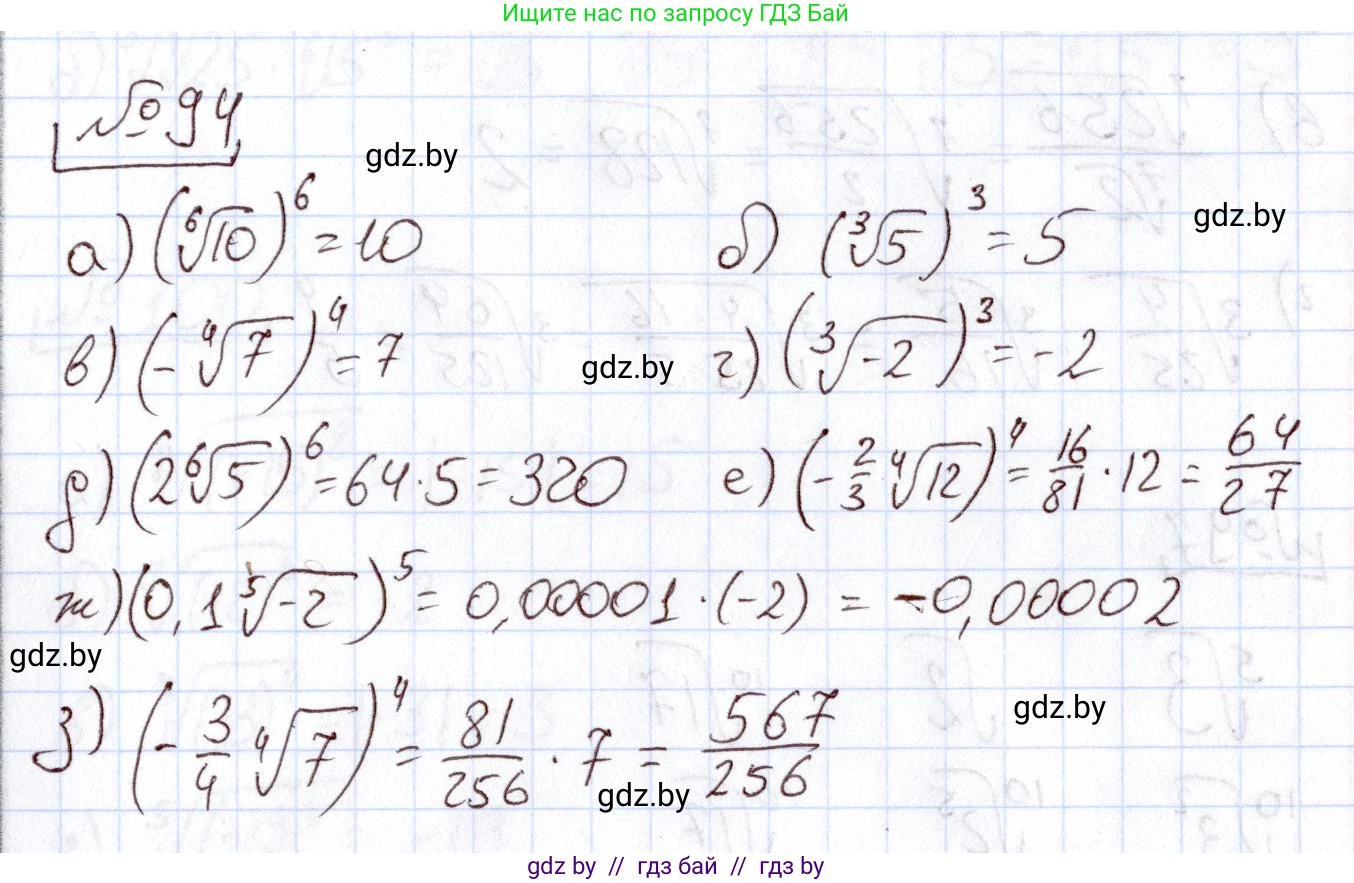 Ищите нас по запросу ГДЗ Бай
№94
gdz.by
а) (⁶√10)⁶ = 10 б) (³√5)³ = 5
gdz.by
в) (-⁴√7)⁴ = 7 г) (³√-2)³ = -2
gdz.by
д) (2⁶√5)⁶ = 64·5 = 320 е) (-2/3 ⁴√12)⁴ = 16/81 · 12 = 64/27
ж) (0,1 ⁵√-2)⁵ = 0,00001·(-2) = -0,00002
gdz.by
з) (-3/4 ⁴√7)⁴ = 81/256 · 7 = 567/256
gdz.by
gdz.by
gdz.by // гдз бай // гдз by